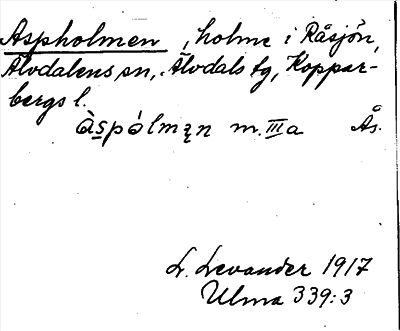 Aspholmen, holme i Råsjön,
Älvdalens sn, Älvdals tg, Koppar-
bergs l.
àspólmęn m. III a Ås.
L. Levander 1917
Ulma 339:3